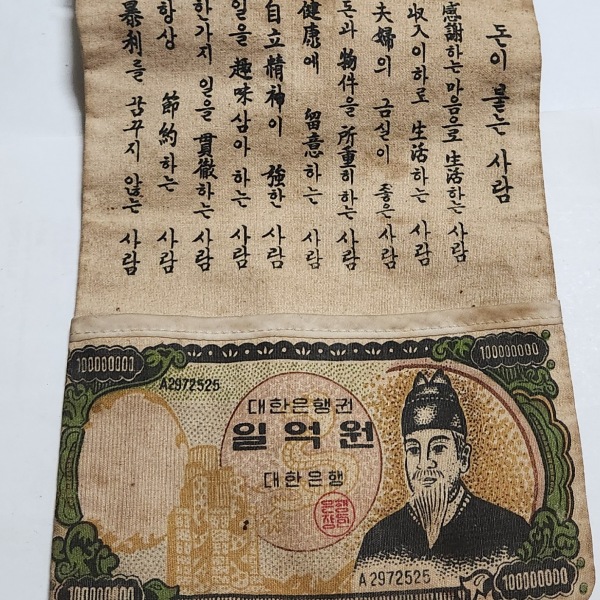 돈이 붙는 사람
感謝하는 마음으로 生活하는 사람
収入이하로 生活하는 사람
夫婦의 금실이 좋은 사람
돈과 物件을 所重히 하는 사람
健康에 留意하는 사람
自立精神이 強한 사람
일을 趣味삼아 하는 사람
한가지 일을 貫徹하는 사람
항상 節約하는 사람
暴利를 꿈꾸지 않는 사람
100000000
100000000
A2972525
대한은행권
일억원
대한은행
A2972525
100000000
100000000